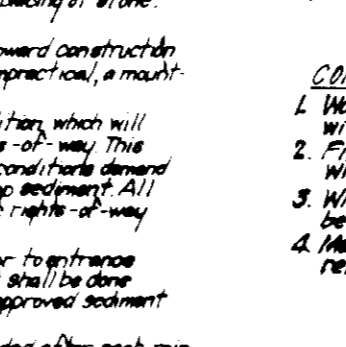 placing of stone.
toward construction
impractical, a mount-
ition, which will
s-of-way. This
conditions demand
p sediment. All
rights-of-way
r to entrance
shall be done
approved sediment
ded after each rain
CON
1. Wa
wi
2. Fi
wh
3. Wh
be
4. Ma
re